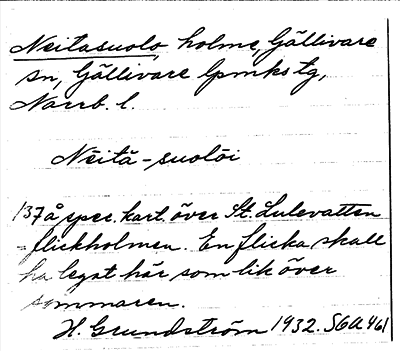 Neitasuolo, holme, Gällivare
sn, Gällivare lpmkstg,
Norrb. l.
Nēitā-suolōi
137 å spec. kart. över St. Lulevatten
= flickholmen. En flicka skall
ha legat här som lik över
sommaren.
H. Grundström 1932. SGA 461